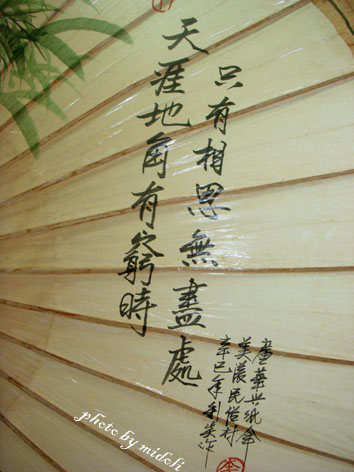 天涯地角有窮時
只有相思無盡處
廣華興紙傘
美濃民俗村
辛巳年
photo by midoli